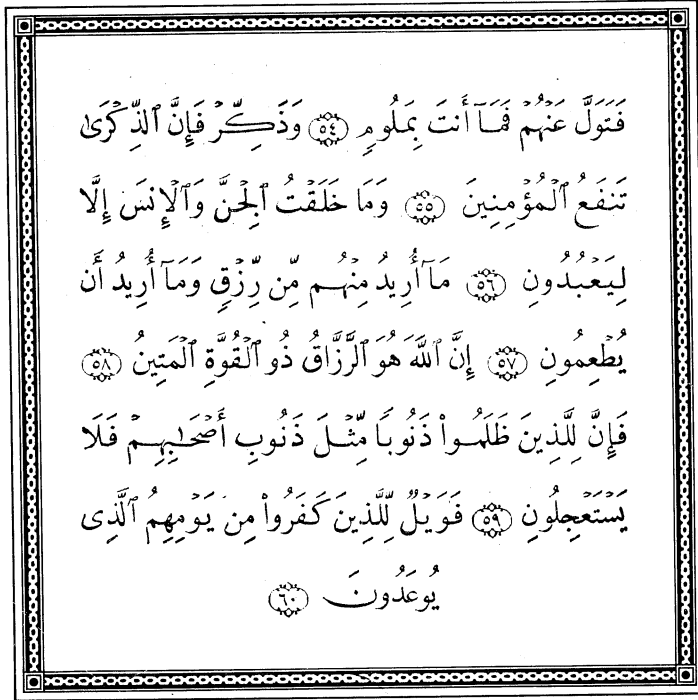 فَتَوَلَّ عَنْهُمْ فَمَآ أَنتَ بِمَلُومٍ ٥٤ وَذَكِّرْ فَإِنَّ ٱلذِّكْرَىٰ
تَنفَعُ ٱلْمُؤْمِنِينَ ٥٥ وَمَا خَلَقْتُ ٱلْجِنَّ وَٱلْإِنسَ إِلَّا
لِيَعْبُدُونِ ٥٦ مَآ أُرِيدُ مِنْهُم مِّن رِّزْقٍ وَمَآ أُرِيدُ أَن
يُطْعِمُونِ ٥٧ إِنَّ ٱللَّهَ هُوَ ٱلرَّزَّاقُ ذُو ٱلْقُوَّةِ ٱلْمَتِينُ ٥٨
فَإِنَّ لِلَّذِينَ ظَلَمُوا۟ ذَنُوبًا مِّثْلَ ذَنُوبِ أَصْحَٰبِهِمْ فَلَا
يَسْتَعْجِلُونِ ٥٩ فَوَيْلٌ لِّلَّذِينَ كَفَرُوا۟ مِن يَوْمِهِمُ ٱلَّذِى
يُوعَدُونَ ٦٠